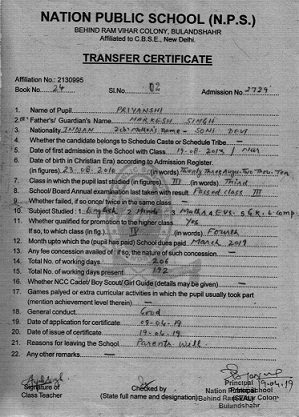 NATION PUBLIC SCHOOL (N.P.S.)
BEHIND RAM VIHAR COLONY, BULANDSHAHR
Affiliated to C.B.S.E., New Delhi.
TRANSFER CERTIFICATE
Affiliation No.: 2130995
Book No. 24 Sl.No. 02 Admission No. 2729
1. Name of Pupil PRIYANSHI
2. Fathers/ Guardian's Name SINGH
3. Nationality INDIAN 2(b) Mother's Name - SONI DEVI
4. Whether the candidate belongs to Schedule Caste or Schedule Tribe
5. Date of first admission in the School with Class
6. Date of birth in Christian Era) according to Admission Register.
(in figures) 23.08.2010 (in words) Twenty Three Aug. Two Thou. Ten
7. Class in which the pupil last studied (in figures) III (in words) Third
8. School/ Board Annual examination last taken with result Passed class III
9. Whether failed, if so once/ twice in the same class
10. Subject Studied : 1 English 2 Hindi 3 Maths 4 EVS 5 G.K. & Comp.
11. Whether qualified for promotion to the higher class Yes
If so, to which class (in fig.) IV (in words) Fourth
12. Month upto the (pupil has paid) School dues paid March 2019
13. Any fee concession availed of If so, the nature of such concession
14. Total No. of working days 206
15. Total No. of working days present 192
16. Whether NCC Cadet/ Boy Scout/ Girl Guide (details may be given)
17. Games palyed or extra curricular activities in which the pupil usually took part
(mention achievement level therein)
18. General conduct Good
19. Date of application for certificate 09.04.19
20. Date of issue of certificate 19.04.19
21. Reasons for leaving the School Parents Will
22. Any other remarks
Signature of
Class Teacher
Checked by
(State full name and designation)
Principal 19.04.19